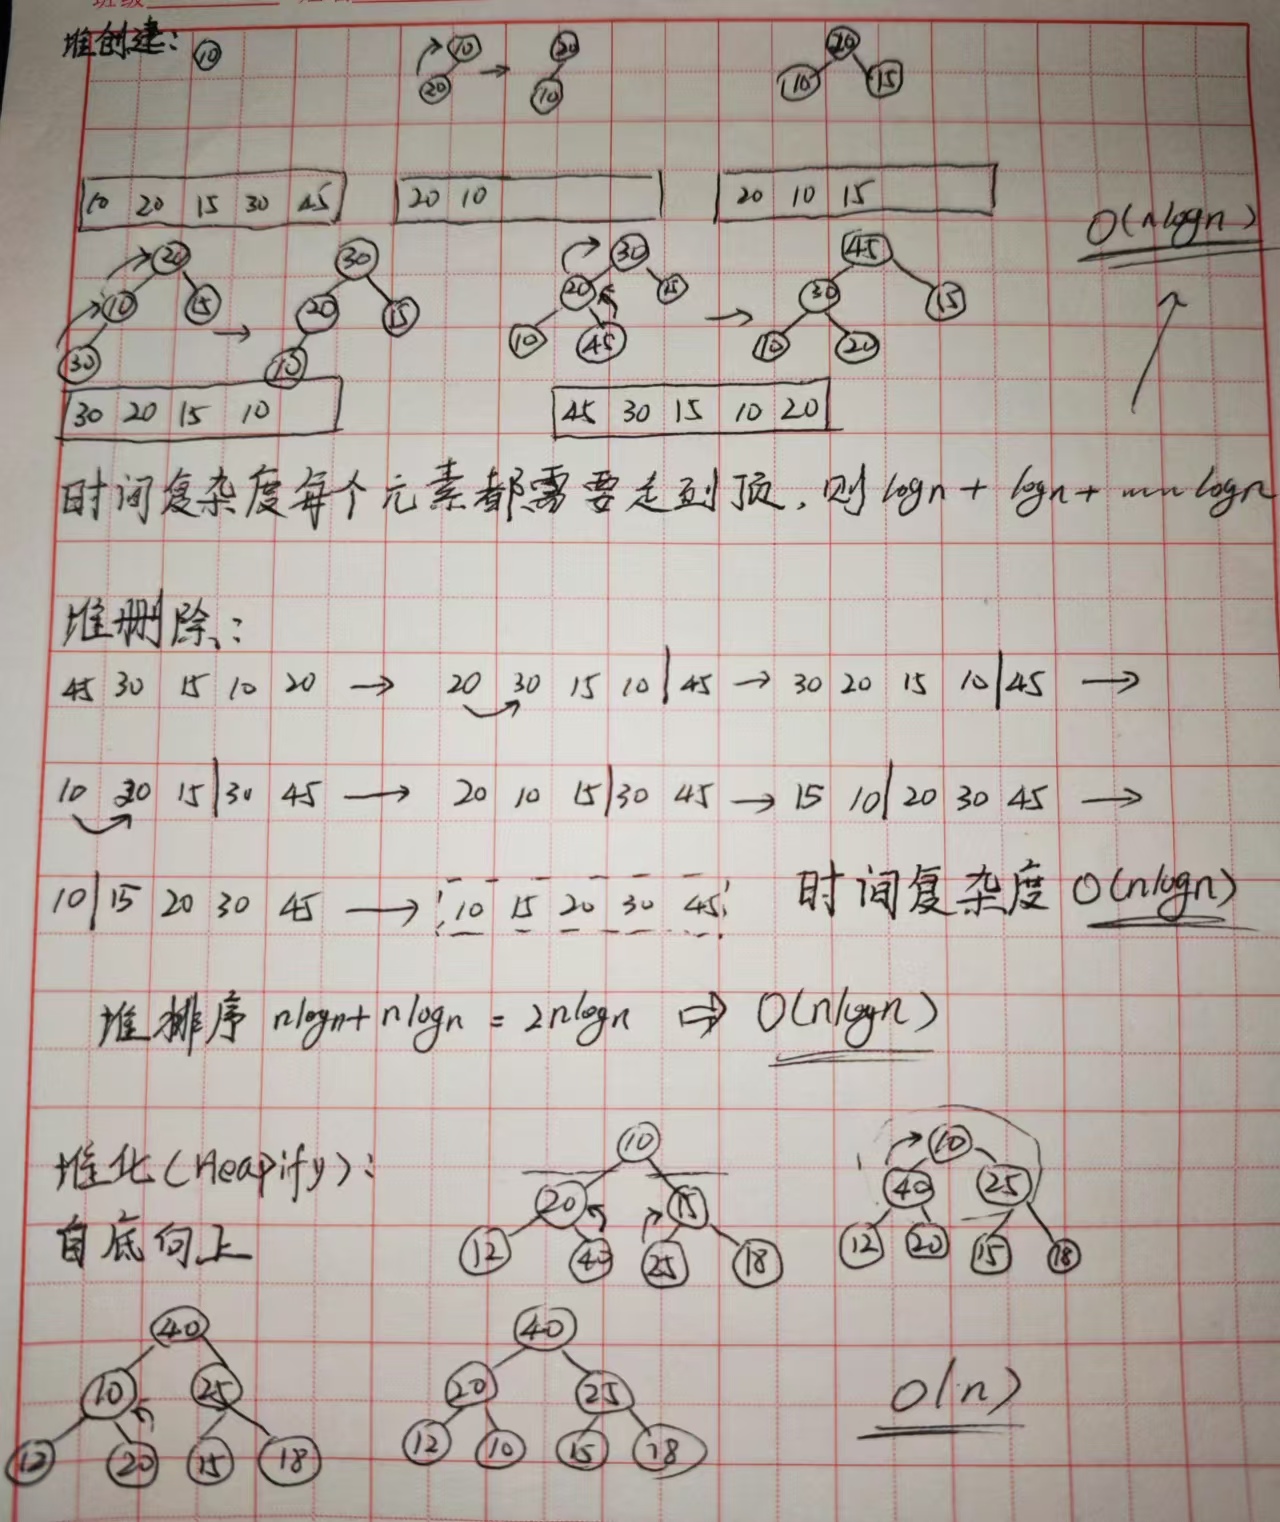 堆创建:
10 10 20 20 10 20 10 15
10 20 15 30 45 20 10 20 10 15
O(nlogn)
20 10 15 30 30 20 15 10 30 20 15 10 45 45 30 15 10 20
30 20 15 10 45 30 15 10 20
时间复杂度每个元素都需要走到顶,则logn + logn + ……logn
堆删除:
45 30 15 10 20 → 20 30 15 10|45 → 30 20 15 10|45 →
10 20 15|30 45 → 20 10 15|30 45 → 15 10|20 30 45 →
10|15 20 30 45 → 10 15 20 30 45 时间复杂度 O(nlogn)
堆排序 nlogn+nlogn = 2nlogn ⇒ O(nlogn)
堆化(Heapify):
自底向上
10 20 15 12 40 25 18
10 40 25 12 20 15 18
40 10 25 12 20 15 18
40 20 25 12 10 15 18
O(n)